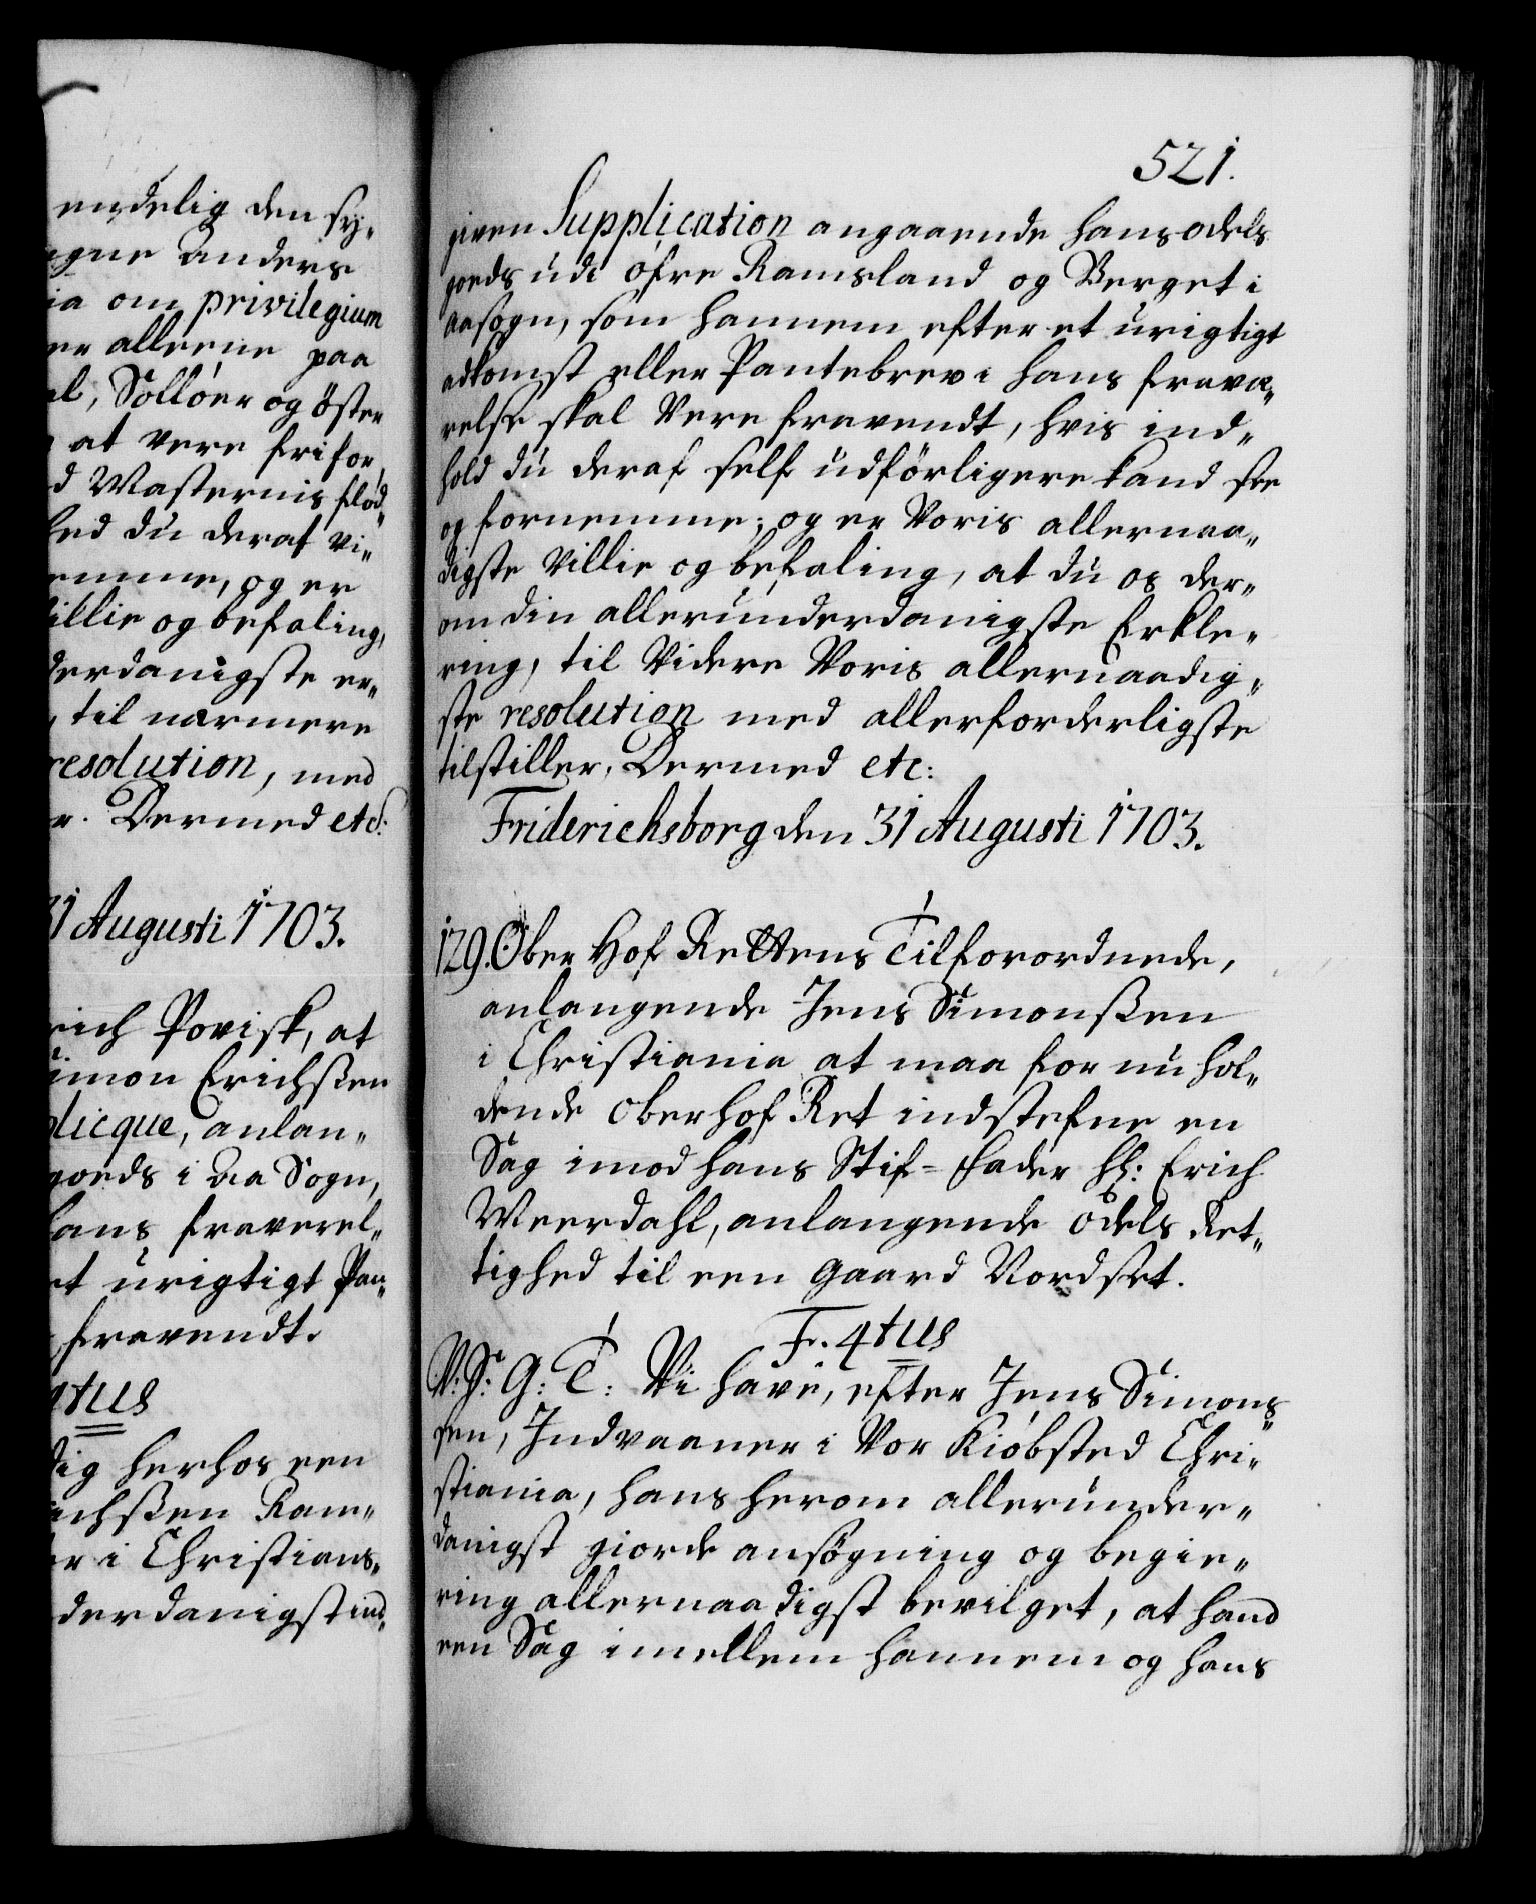 endelig den sy-
agne Anders
ia om privilegium
er alleene paa
el, Sollöer og öster
at vere fri for
d Masternis flöd-
hed du deraf vi-
emme, og er
villie og befaling,
derdanigste er-
, til nærmere
resolution, med
r. Dermed etc:
31 Augusti 1703.
rich Povisk, at
imon Erichssen
plicque, anlan-
goeds i Aa Sogn,
hans fraverel-
et urigtigt Pan-
fravendt.
4tus
dig herhos een
richssen Ram-
er i Christians-
derdanigst ind-
521.
given Supplication angaaende hans odels
goeds udi öfre Ramsland og Berget i
Aasogn, som hannem efter et urigtigt
adkomst eller Pantebrev i hans fravæ-
relse skal vere fravendt, hvis ind-
hold du deraf self udförligere kand see
og fornemme; og er Voris allernaa-
digste Villie og befaling, at du os der-
om din allerunderdanigste Erkle-
ring, til Videre Voris allernaadig-
ste resolution med allerforderligste
tilstiller, Dermed etc:
Friderichsborg den 31 Augusti 1703.
129. Ober Hof Rettens Tilforordnede,
anlangende Jens Simonssen
i Christiania at maa for nu hol-
dende Oberhof Ret indstefne en
Sag imod hans Stif-Fader Hl: Erich
Weerdahl, anlangende odels Ret-
tighed til een gaard Nordset.
Fr. 4tus
V: S: G: T: Vi have, efter Jens Simons-
sen, Indvaaner i Vor Kiöbsted Chri-
stiania, hans herom allerunder-
danigst giorde ansögning og begie-
ring allernaadigst bevilget, at hand
een Sag imellem hannem og hans